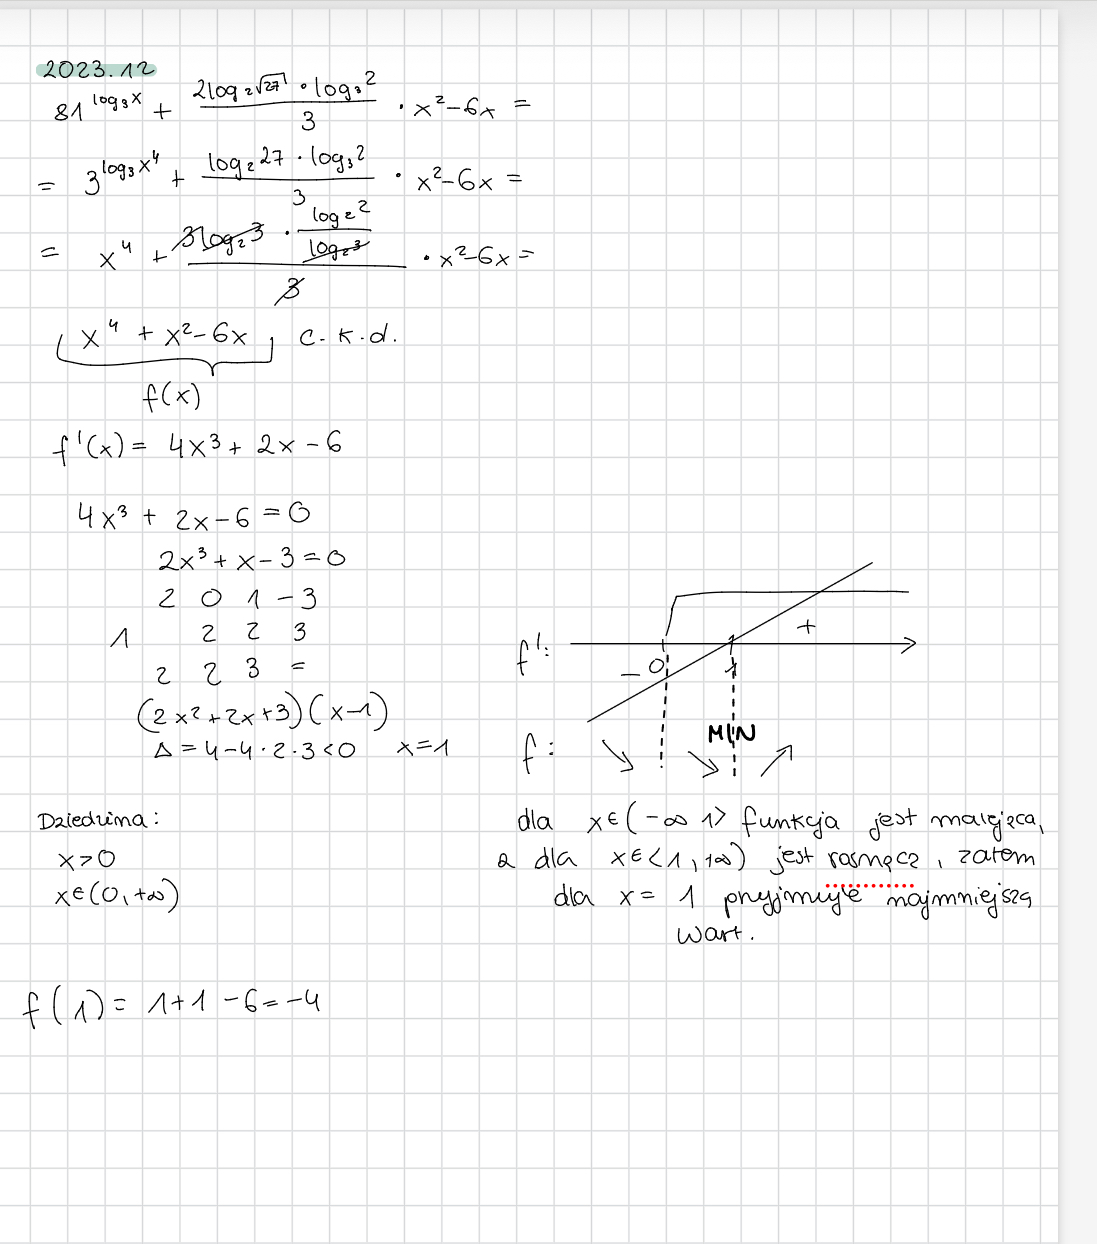 2023.12
81^(log₃x) + (2log₂√27 · log₃2)/3 · x² - 6x =
= 3^(log₃x⁴) + (log₂27 · log₃2)/3 · x² - 6x =
= x⁴ + (3log₂3 · (log₂2)/(log₂3))/3 · x² - 6x =
x⁴ + x² - 6x c.k.d.
f(x)
f'(x) = 4x³ + 2x - 6
4x³ + 2x - 6 = 0
2x³ + x - 3 = 0
2 0 1 -3
1 2 2 3
2 2 3 =
(2x² + 2x + 3)(x - 1)
Δ = 4 - 4·2·3 < 0 x = 1
f':
- 0 1 +
MIN
f:
Dziedzina:
x > 0
x ∈ (0, +∞)
dla x ∈ (-∞ 1> funkcja jest malejąca,
a dla x ∈ <1, +∞) jest rosnącą, zatem
dla x = 1 przyjmuje najmniejszą
wart.
f(1) = 1 + 1 - 6 = -4